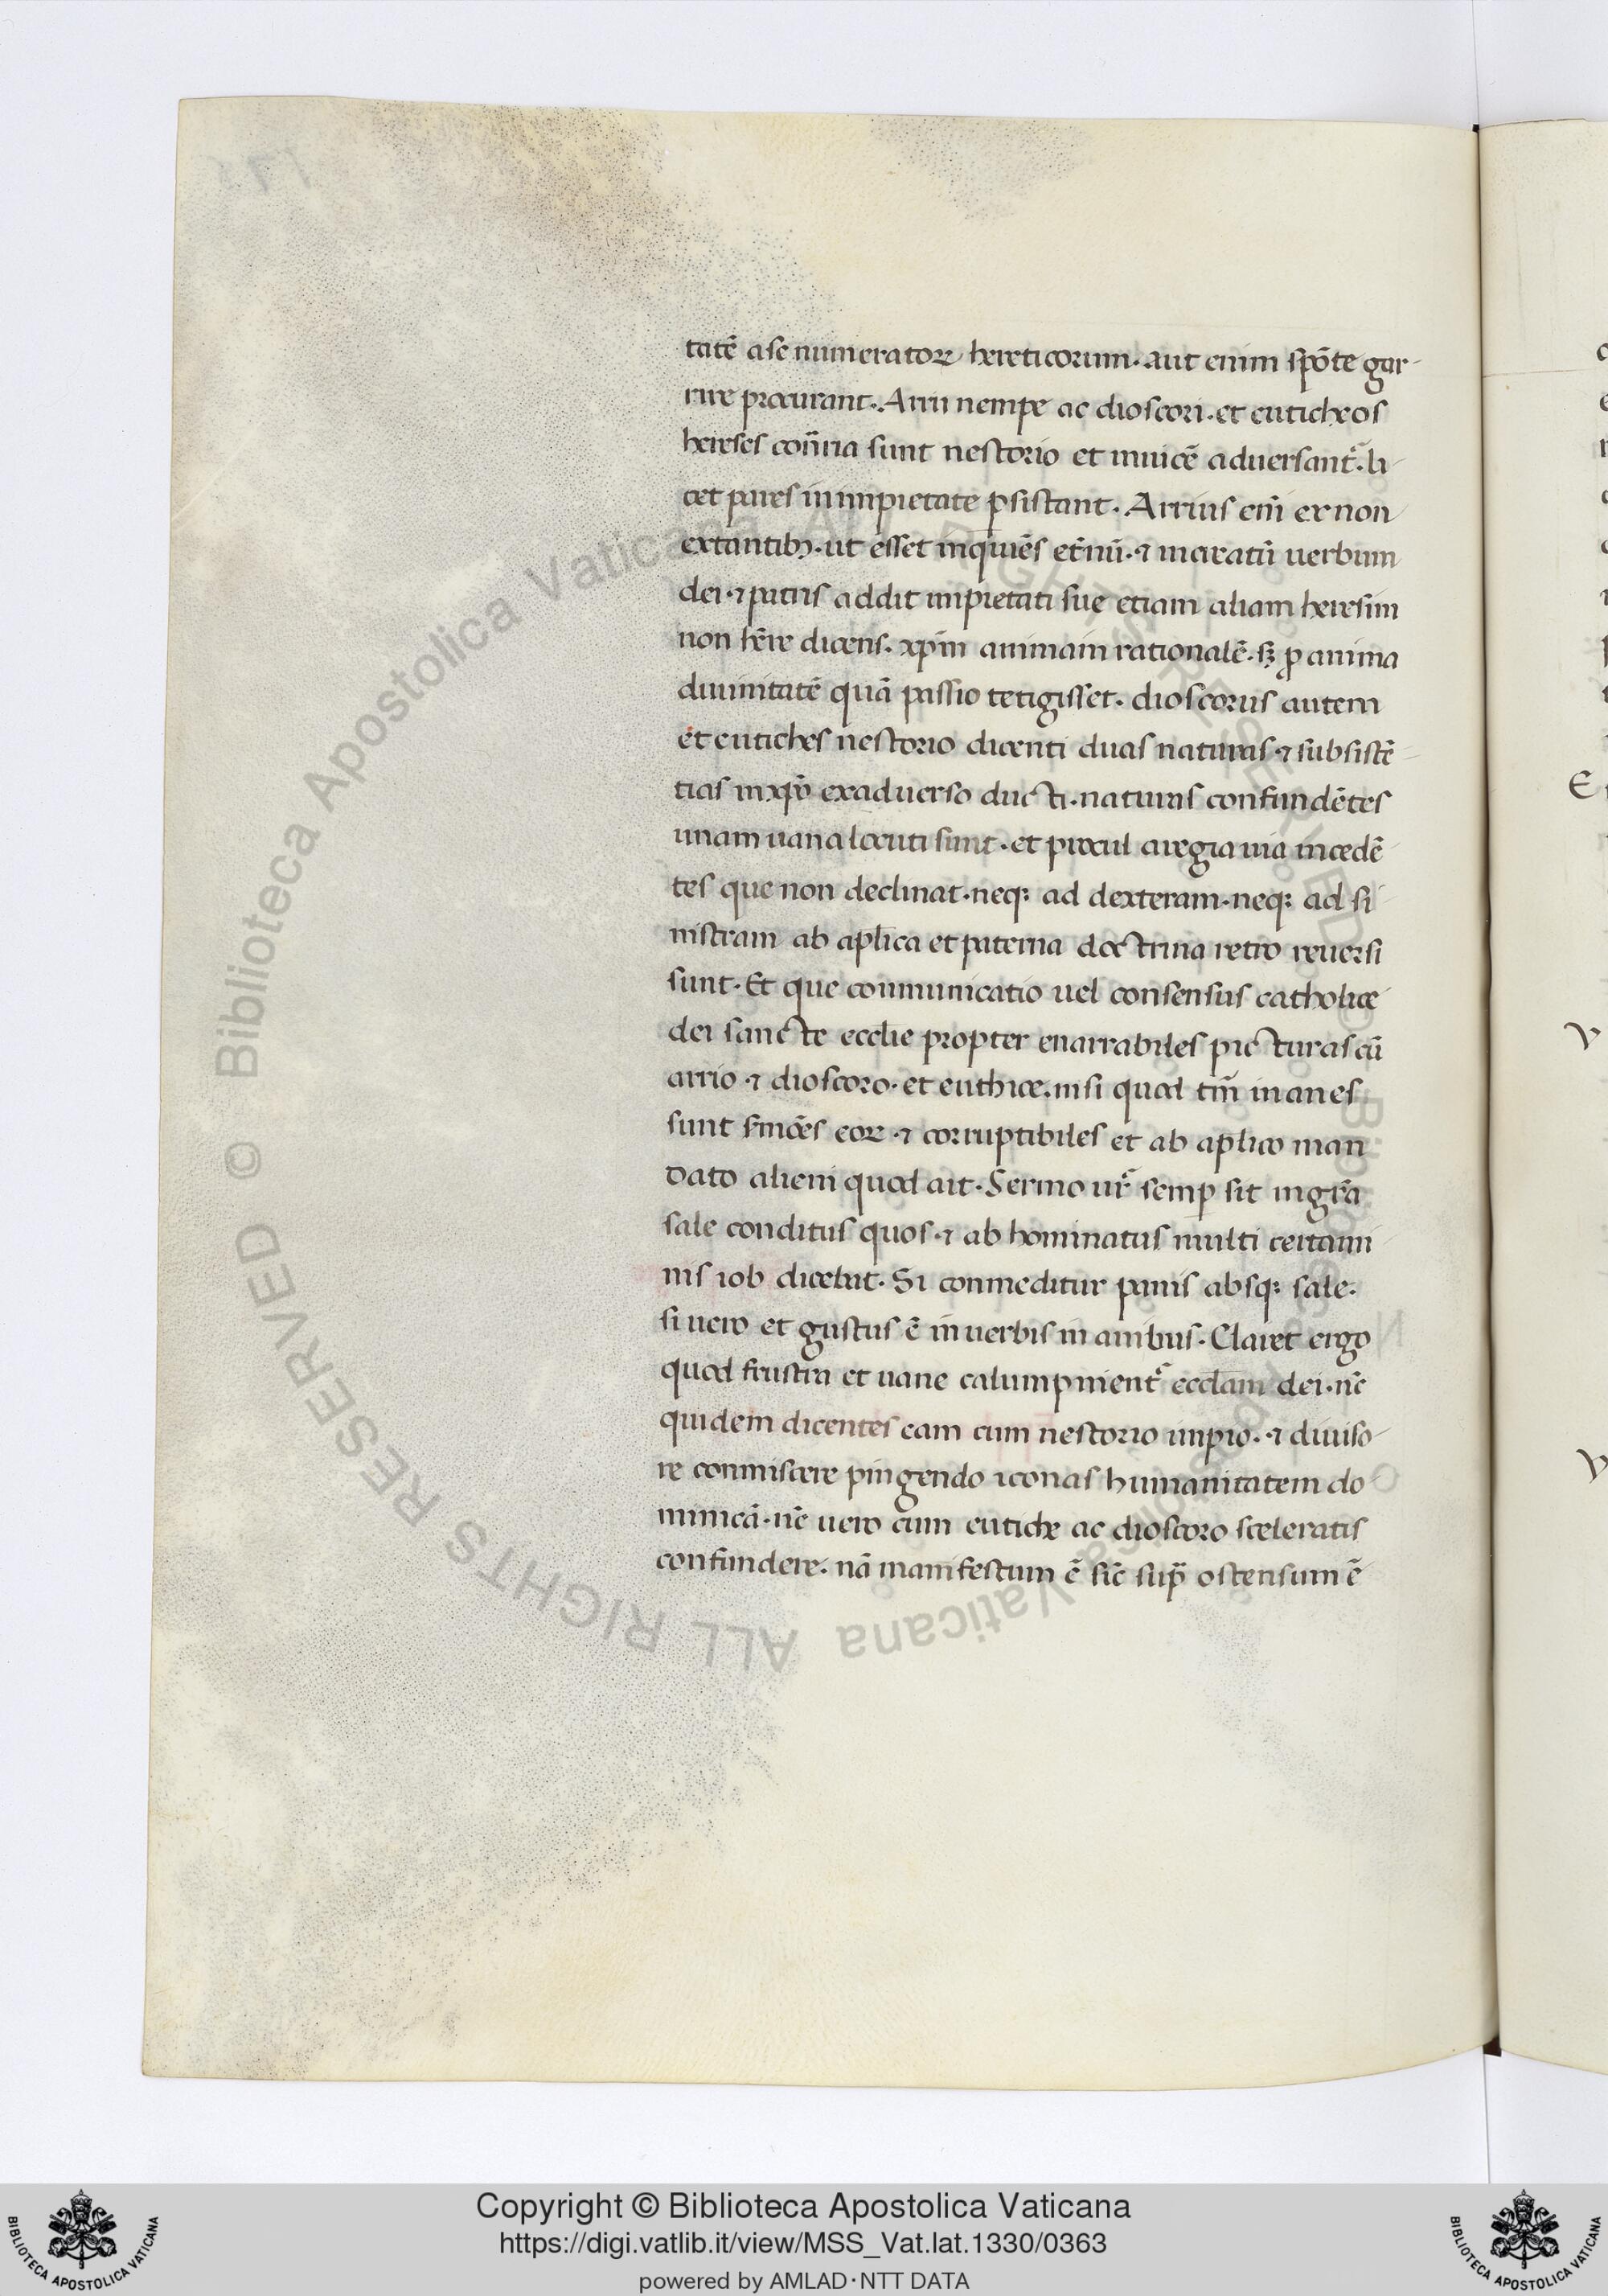 tatē a se numeratoꝝ hereticorum. aut enim spōte gar-
rire procurant. Arrii nempe ac dioscori. et euticheos
hereses cont̄ria sunt nestorio et inuicē aduersant᷑. li-
cet pares in impietate ꝑsistant. Arrius eni᷑ ex non
extantibꝫ. ut esset inquiēs et̄nū. ⁊ increatū uerbum
dei. ⁊ patris addit impietati sue etiam aliam heresim
non hēre dicens. xp̄m animam rationalē. sꝫ ꝓ anima
diuinitatē quā passio tetigisset. dioscorus autem
et eutiches nestorio dicenti duas naturas. ⁊ subsistē-
tias in xp̄o exaduerso ducti. naturis confundētes
unam uana locuti sunt. et procul a regia uia incedē-
tes que non declinat. neqꝫ ad dexteram. neqꝫ ad si-
nistram ab aplica et paterna doctrina retro reuersi
sunt. Et que conmunicatio uel consensus catholice
dei sancte ecclie propter enarrabiles picturas cū
arrio. ⁊ dioscoro. et euthice. nisi quod tm̄ inanes
sunt sm̄oēs eoꝝ. ⁊ corruptibiles et ab aplico man
dato alieni quod ait. Sermo ur᷑ semꝑ sit in gr̄a
sale conditus quos. ⁊ ab hominatus multi certami
nis iob dicebat. Si conmeditur panis absqꝫ sale.
si uero et gustus ē in uerbis in anibus. Claret ergo
quod frustra et uane calumpnient᷑ eccl̄am dei. nēc
quidem dicentes eam cum nestorio impio. ⁊ diuiso-
re conmiscere pingendo iconas humanitatem do-
minicā. nēc uero cum eutiche ac dioscoro sceleratis
confundere. nā manifestum ē sic̄ sup̄ ostensum ē
Copyright © Biblioteca Apostolica Vaticana
https://digi.vatlib.it/view/MSS_Vat.lat.1330/0363
powered by AMLAD·NTT DATA
BIBLIOTECA APOSTOLICA VATICANA
BIBLIOTECA APOSTOLICA VATICANA
© Biblioteca Apostolica Vaticana ALL RIGHTS RESERVED